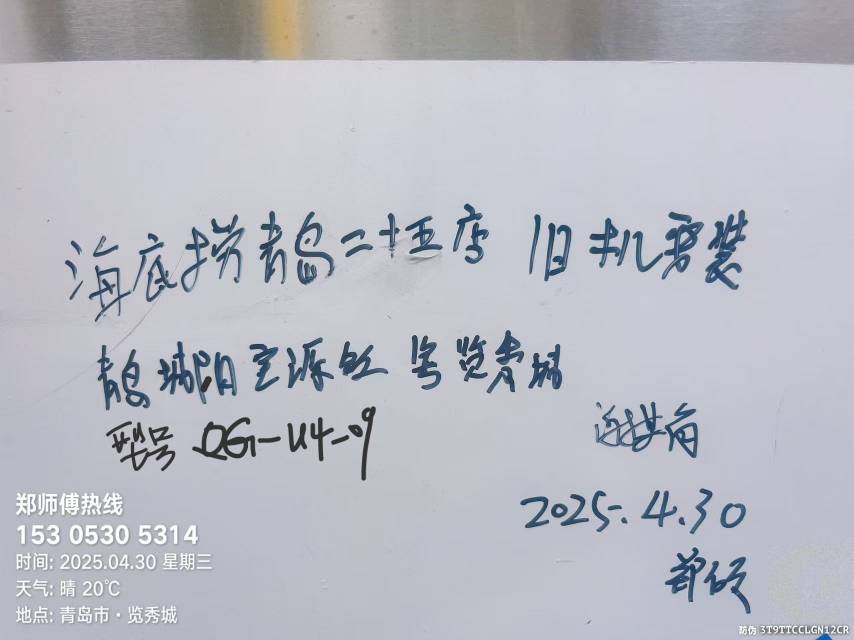 海底捞青岛二十五店 旧机要装
青岛城阳宝源路 号览秀城
型号 QG-U4-09
2025.4.30
郑师傅热线
153 0530 5314
时间: 2025.04.30 星期三
天气: 晴 20℃
地点: 青岛市·览秀城
防伪 3T9TTCCLGN12CR